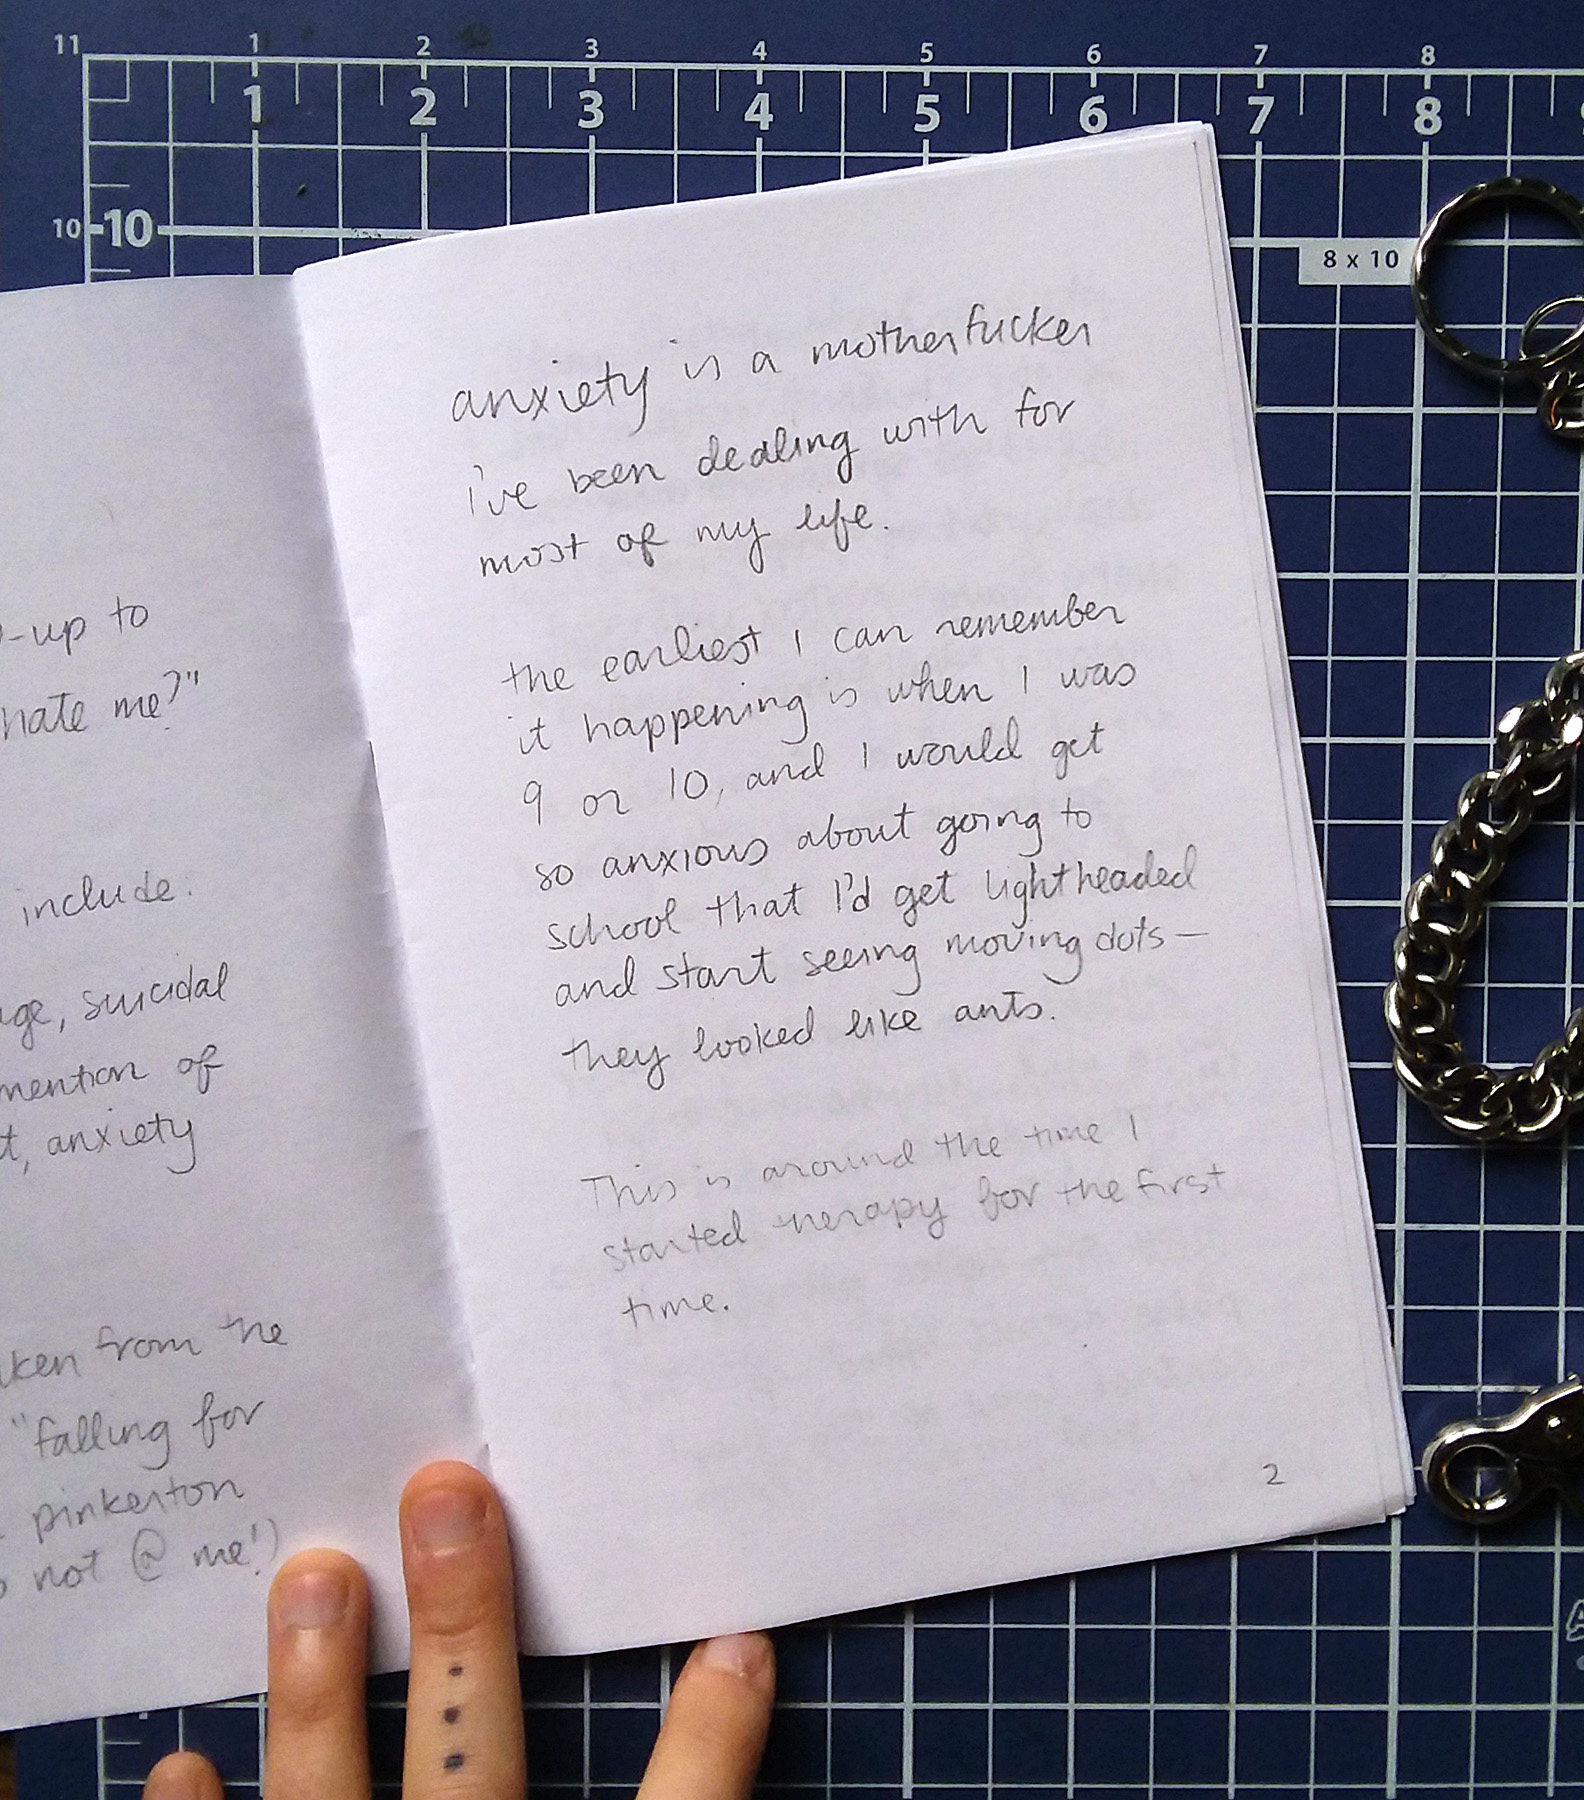 11
1 2 3 4 5 6 7 8
1 2 3 4 5 6 7 8
10 10
8 x 10
-up to
hate me?"
include:
suicidal
mention of
anxiety
from the
"falling for
pinkerton
not @ me!)
anxiety is a motherfucker
i've been dealing with for
most of my life.
the earliest I can remember
it happening is when I was
9 or 10, and I would get
so anxious about going to
school that I'd get lightheaded
and start seeing moving dots—
they looked like ants.
This is around the time I
started therapy for the first
time.
2